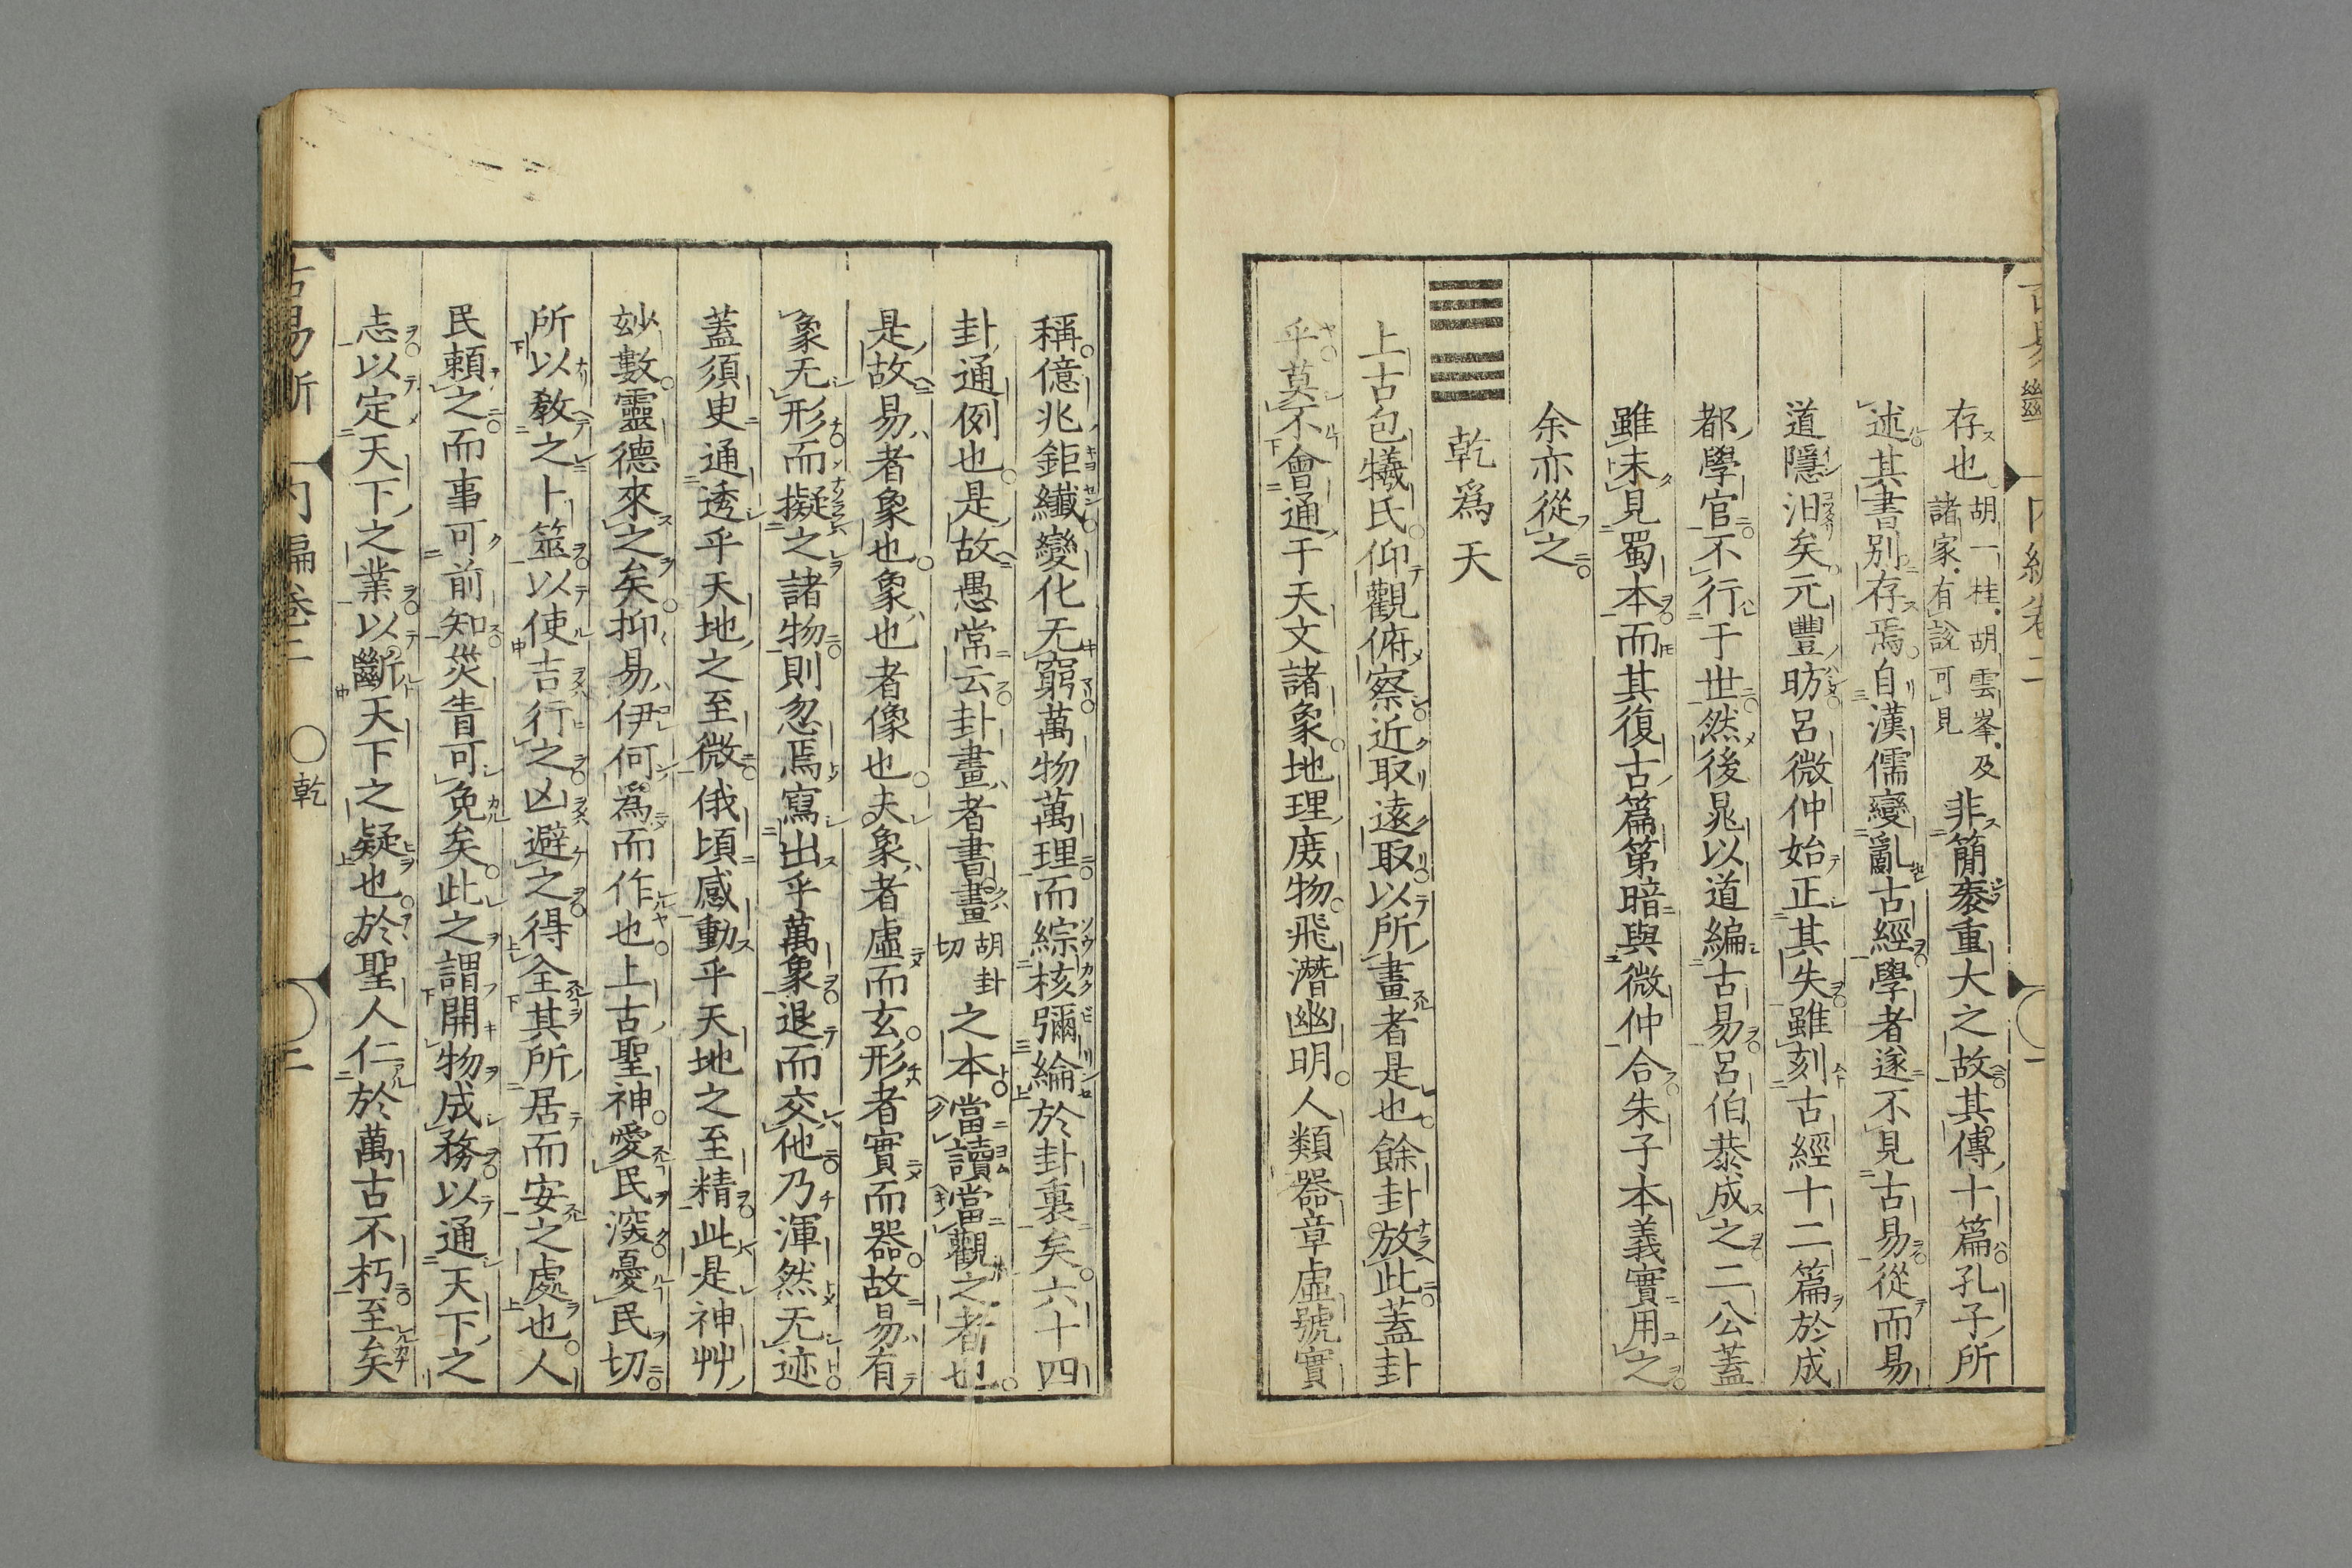 存也胡一桂胡雲峯及諸家有說可見非簡袠重大之故其傳十篇孔子所
述其書別存焉自漢儒變亂古經學者遂不見古易從而易
道隱汨矣元豐昉呂微仲始正其失雖刻古經十二篇於成
都學官不行于世然後晁以道編古易呂伯恭成之二公蓋
雖未見蜀本而其復古篇第暗與微仲合朱子本義實用之
余亦從之
乾爲天
上古包犧氏仰觀俯察近取遠取以所畫者是也餘卦放此蓋卦
乎莫不會通于天文諸象地理庶物飛潛幽明人類器章虛號實
稱億兆鉅纖變化无窮萬物萬理而綜核彌綸於卦裏矣六十四
卦通例也是故愚常云卦畫者書畫胡卦切之本當讀當觀之者也
是故易者象也象也者像也夫象者虛而玄形者實而器故易有
象无形而擬之諸物則忽焉寫出乎萬象退而交他乃渾然无迹
蓋須臾通透乎天地之至微俄頃感動乎天地之至精此是神艸
妙數靈德來之矣抑易伊何爲而作也上古聖神愛民深憂民切
所以敎之卜筮以使吉行之凶避之得全其所居而安之處也人
民賴之而事可前知災眚可免矣此之謂開物成務以通天下之
志以定天下之業以斷天下之疑也於聖人仁於萬古不朽至矣
古易斷 內編卷二 〇乾 二